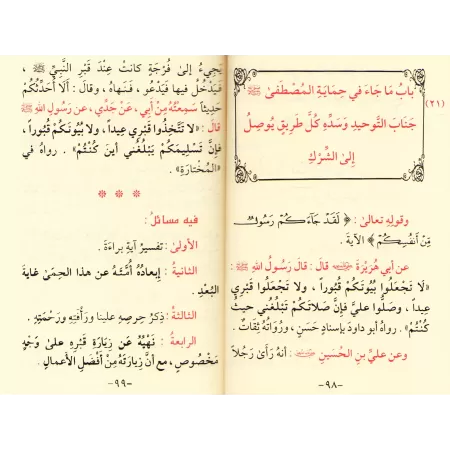 (٢١)
بابُ مَا جَاءَ في حِمَايَةِ المُصْطَفىٰ ﷺ
جَنَابَ التَّوحيدِ وَسَدِّهِ كُلَّ طَرِيقٍ يُوصِلُ
إلى الشِّرْكِ
وقولِهِ تعالىٰ : ﴿ لَقَدْ جَآءَكُمْ رَسُولٌ
مِّنْ أَنفُسِكُمْ ﴾ الآيةَ .
عن أبي هُرَيْرَةَ رضي الله عنه قالَ : قالَ رَسُولُ اللهِ ﷺ :
«لا تَجْعَلُوا بُيُوتَكُمْ قُبُوراً ، ولا تَجْعَلُوا قَبْرِي
عِيداً ، وصَلُّوا عليَّ فإنَّ صَلاتَكُمْ تَبْلُغُني حيثُ
كُنْتُمْ» . رواهُ أبو داودَ بإسنادٍ حَسَنٍ ، ورُوَاتُهُ ثِقَاتٌ .
وعن عليِّ بنِ الحُسَينِ : أنهُ رَأىٰ رَجُلاً
ـ٩٨ـ
يَجِيءُ إلىٰ فُرْجَةٍ كانتْ عِنْدَ قَبْرِ النَّبيِّ ﷺ ،
فَيَدْخُلُ فيها فيَدْعُو ، فَنَهاهُ ، وقالَ : ألا أُحَدِّثُكُمْ
حَدِيثاً سَمِعْتُهُ مِنْ أبي ، عَنْ جَدِّي ، عن رَسُولِ اللهِ ﷺ
قالَ : «لا تَتَّخِذُوا قَبْرِي عِيداً ، ولا بُيُوتَكُمْ قُبُوراً ،
فإنَّ تَسْلِيمَكُمْ يَبْلُغُني أينَ كُنْتُمْ» . رواهُ في
«المُخْتَارَةِ» .
* * *
فيه مسائلُ :
الأولىٰ : تفسيرُ آيةِ براءةَ .
الثانيةُ : إبعادُهُ أُمَّتَهُ عن هذا الحِمَىٰ غايةَ
البُعْدِ .
الثالثةُ : ذِكرُ حِرصِهِ علينا ورَأْفَتِهِ ورَحْمَتِهِ .
الرابعةُ : نَهْيُهُ عَن زِيارَةِ قَبْرِهِ علىٰ وَجْهٍ
مَخْصُوصٍ ، معَ أنَّ زِيارَتَهُ مِنْ أفضَلِ الأعمالِ .
ـ٩٩ـ